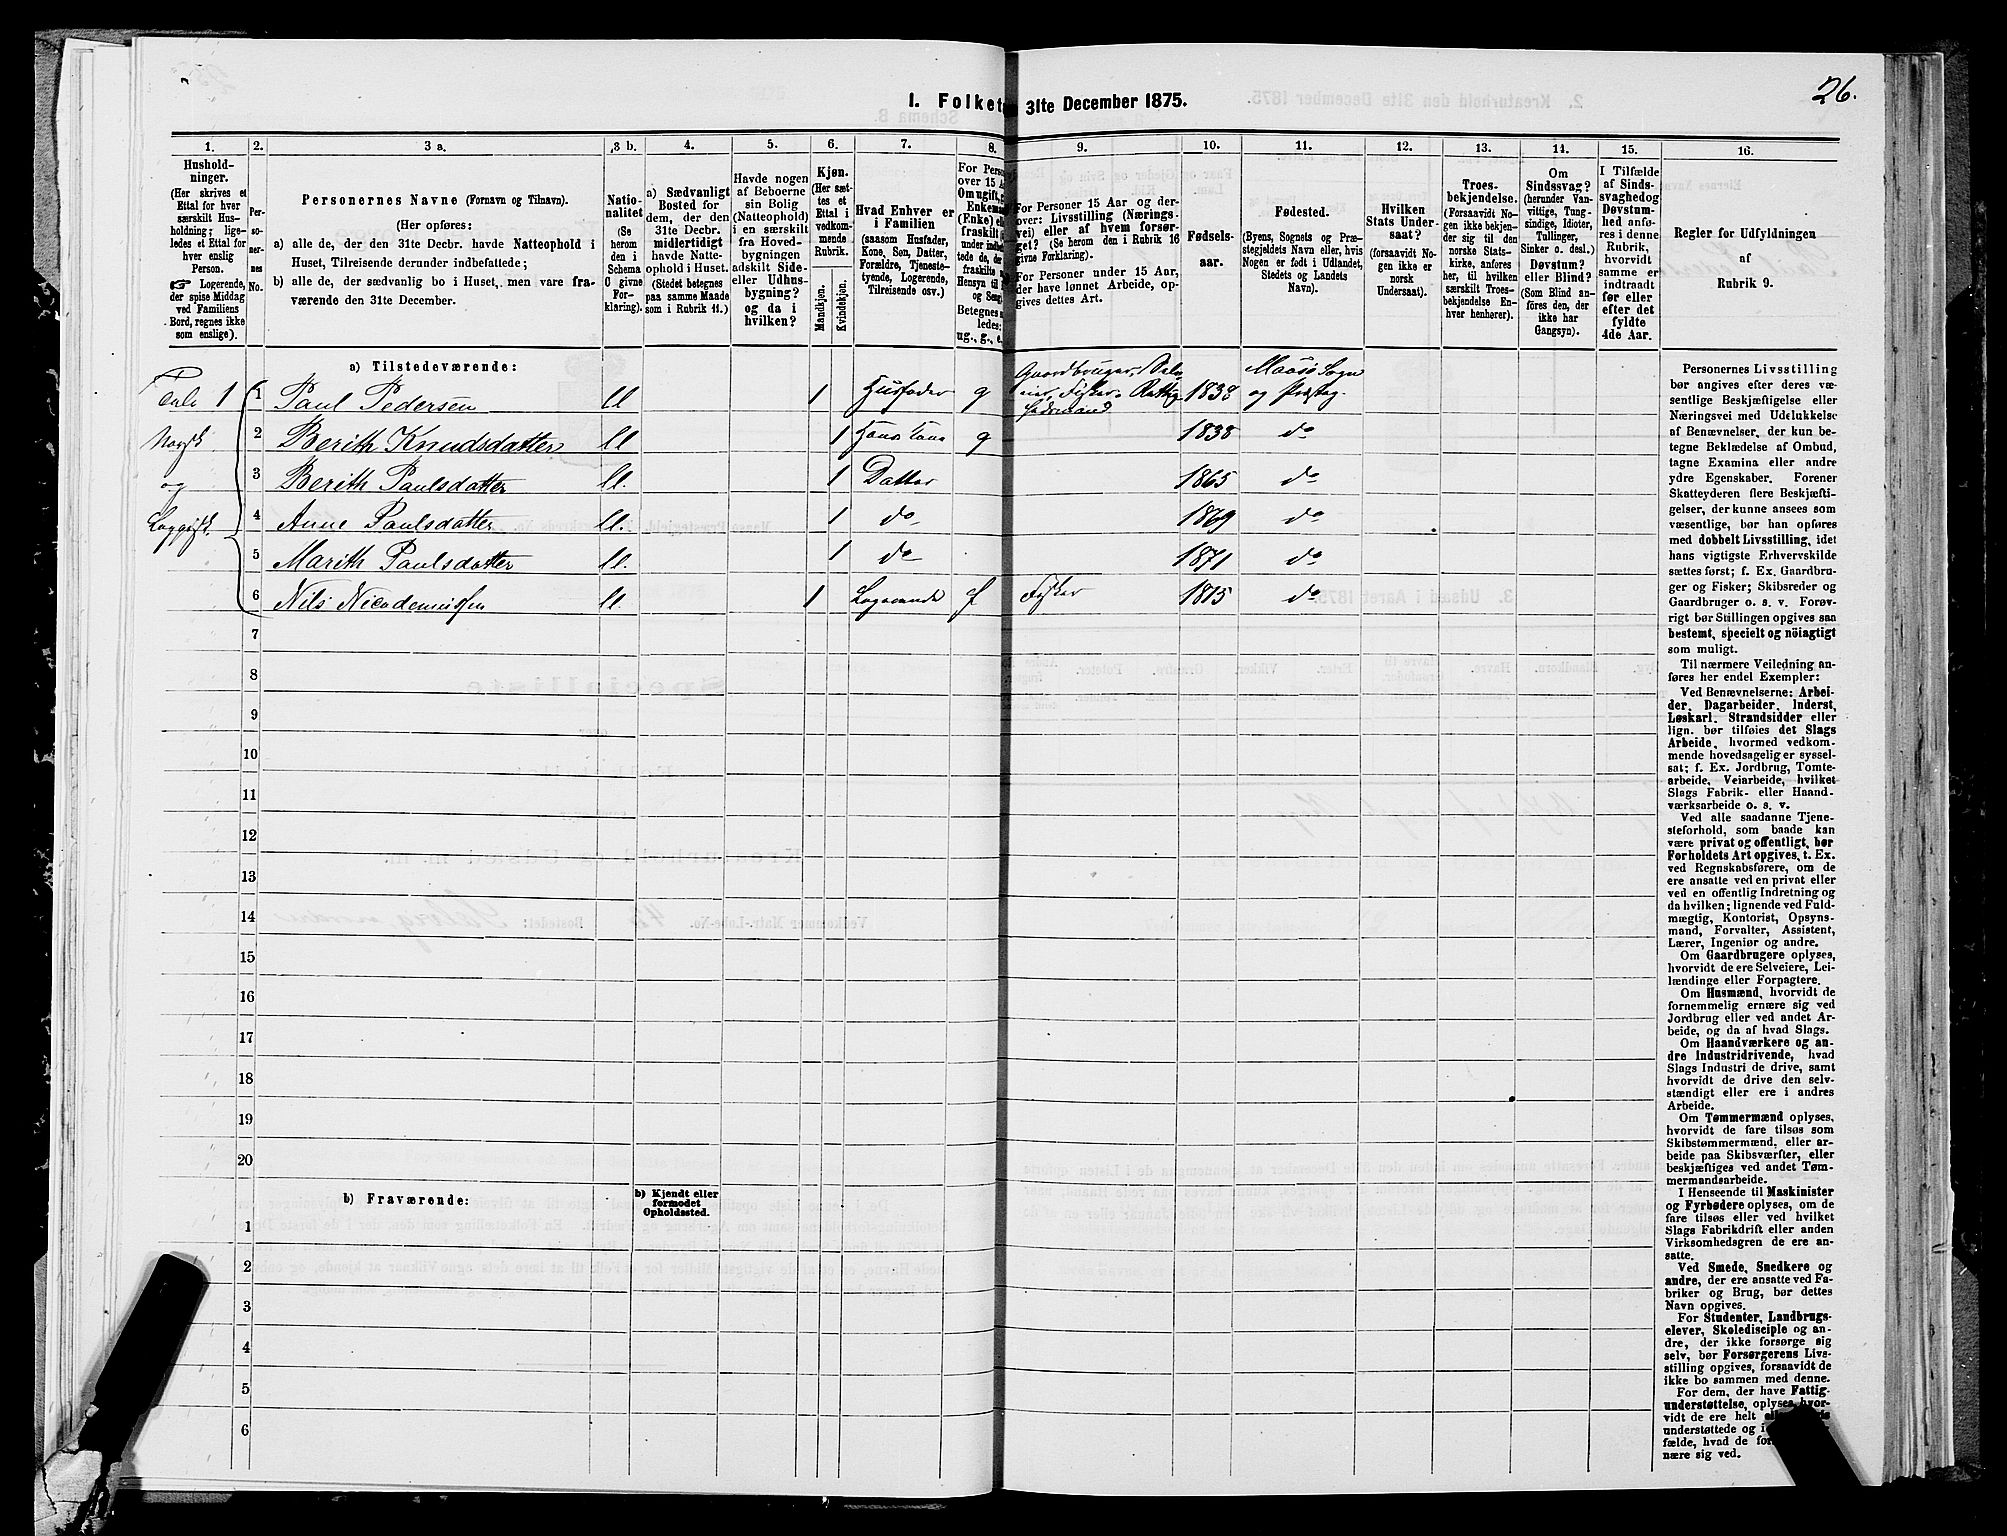 26.
1. Folket 31te December 1875.
1. 2. 3 a. 3 b. 4. 5. 6. 7. 8. 9. 10. 11. 12. 13. 14. 15. 16.
Hushold-
ninger.
(Her skrives et
Ettal for hver
særskilt Hus-
holdning; lige-
ledes et Ettal for
hver enslig
Person.
☞ Logerende,
der spise Middag
ved Familiens
Bord, regnes ikke
som enslige).
Per-
so-
ner-
nes
No.
Personernes Navne (Fornavn og Tilnavn).
(Her opføres:
a) alle de, der den 31te Decbr. havde Natteophold i
Huset, Tilreisende derunder indbefattede;
b) alle de, der sædvanlig bo i Huset, men vare fra-
værende den 31te December.
Natio-
nalitet
(Se
herom
den i
Schema
C givne
For-
klaring).
a) Sædvanligt
Bosted for
dem, der den
31te Decbr.
midlertidigt
havde Natte-
ophold i Huset.
(Stedet betegnes
paa samme Maade
som i Rubrik 11.)
Havde nogen
af Beboerne
sin Bolig
(Natteophold)
i en særskilt
fra Hoved-
bygningen
adskilt Side-
eller Udhus-
bygning?
og da i
hvilken?
Kjøn.
(Her sæt-
tes et
Ettal i
vedkom-
mende
Rubrik.
Mandkjøn.
Kvindekjøn.
Hvad Enhver er
i Familien
(saasom Husfader,
Kone, Søn, Datter,
Forældre, Tjeneste-
tyende, Logerende,
Tilreisende osv.)
For Pers
over 15 A
Om ugift, g
Enkem
(Enke) e
fraskilt
under indb
tede de, der
fraskilte
Hensyn til
og Seng.
Betegnes
ledes:
ug., g., e.
For Personer 15 Aar og der-
over: Livsstilling (Nærings-
vei) eller af hvem forsør-
get? (Se herom den i Rubrik 16
givne Forklaring).
For Personer under 15 Aar,
der have lønnet Arbeide, op-
gives dettes Art.
Fødsels-
aar.
Fødested.
(Byens, Sognets og Præ-
stegjeldets Navn eller, hvis
Nogen er født i Udlandet,
Stedets og Landets
Navn).
Hvilken
Stats Under-
saat?
(forsaavidt No-
gen ikke er
norsk
Undersaat).
Troes-
bekjendelse.
(Forsaavidt No-
gen ikke bekjen-
der sig til den
norske Stats-
kirke, anføres
her, til hvilken
særskilt Troes-
bekjendelse En-
hver henhører).
Om
Sindssvag?
(herunder Van-
vittige, Tung-
sindige, Idioter,
Tullinger,
Sinker o. desl.)
Døvstum?
eller Blind?
(Som Blind an-
føres den, der
ikke har
Gangsyn).
I Tilfælde
af Sinds-
svaghed og
Døvstum-
hed anfø-
res i denne
Rubrik,
hvorvidt
samme er
indtraadt
før eller
efter det
fyldte
4de Aar.
Regler for Udfyldningen
af
Rubrik 9.
a) Tilstedeværende:
Tale 1 1 Paul Pedersen ll 1 Husfader g Gaardbruger, 1838 Maasø Sogn og Præstg.
Norsk 2 Berith Knudsdatter ll 1 Hans Kone g 1838 do
og 3 Berith Paulsdatter ll. 1 Datter 1865 do
Lappisk. 4 Anne Paulsdatter ll. 1 do 1869 do
5 Marith Paulsdatter ll. 1 do 1871 do
6 Nils Nicodemussen ll. 1 Logerende Fisker 1815 do
7
8
9
10
11
12
13
14
15
16
17
18
19
20
b) Fraværende:
b) Kjendt eller
formodet
Opholdssted.
1
2
3
4
5
6
Personernes Livsstilling
bør angives efter deres væ-
sentlige Beskjæftigelse eller
Næringsvei med Udelukkelse
af Benævnelser, der kun be-
tegne Beklædelse af Ombud,
tagne Examina eller andre
ydre Egenskaber. Forener
Skatteyderen flere Beskjæfti-
gelser, der kunne ansees som
væsentlige, bør han opføres
med dobbelt Livsstilling, idet
hans vigtigste Erhvervskilde
sættes først; f. Ex. Gaardbru-
ger og Fisker; Skibsreder og
Gaardbruger o. s. v. Forøv-
rigt bør Stillingen opgives saa
bestemt, specielt og nöiagtigt
som muligt.
Til nærmere Veiledning an-
føres her endel Exempler:
Ved Benævnelserne: Arbei-
der, Dagarbeider, Inderst,
Løskarl, Strandsidder eller
lign. bør tilføies det Slags
Arbeide, hvormed vedkom-
mende hovedsagelig er syssel-
sat; f. Ex. Jordbrug, Tomte-
arbeide, Veiarbeide, hvilket
Slags Fabrik- eller Haand-
værksarbeide o. s. v.
Ved alle saadanne Tjene-
steforhold, som baade kan
være privat og offentligt, bør
Forholdets Art opgives, t. Ex.
ved Regnskabsførere, om de
ere ansatte ved en privat eller
ved en offentlig Indretning og
da hvilken; lignende ved Fuld-
mægtig, Kontorist, Opsyns-
mand, Forvalter, Assistent,
Lærer, Ingeniør og andre.
Om Gaardbrugere oplyses,
hvorvidt de ere Selveiere, Lei-
lændinge eller Forpagtere.
Om Husmænd, hvorvidt de
fornemmelig ernære sig ved
Jordbrug eller ved andet Ar-
beide, og da af hvad Slags.
Om Haandværkere og an-
dre Industridrivende, hvad
Slags Industri de drive, samt
hvorvidt de drive den selv-
stændigt eller ere i andres
Arbeide.
Om Tømmermænd oplyses,
hvorvidt de fare tilsøs som
Skibstømmermænd, eller ar-
beide paa Skibsværfter, eller
beskjæftiges ved andet Tøm-
mermandsarbeide.
I Henseende til Maskinister
og Fyrbødere oplyses, om de
fare tilsøs eller ved hvilket
Slags Fabrikdrift eller anden
Virksomhedsgren de ere an-
satte.
Ved Smede, Snedkere og
andre, der ere ansatte ved Fa-
briker og Brug, bør dettes
Navn opgives.
For Studenter, Landbrugs-
elever, Skoledisciple og an-
dre, der ikke forsørge sig
selv, bør Forsørgerens Livs-
stilling opgives, forsaavidt de
ikke bo sammen med denne.
For dem, der have Fattig-
understøttelse, oplyses, hvor-
vidt de ere helt
understøttede og i
fælde, hvad de for
nære sig ved.